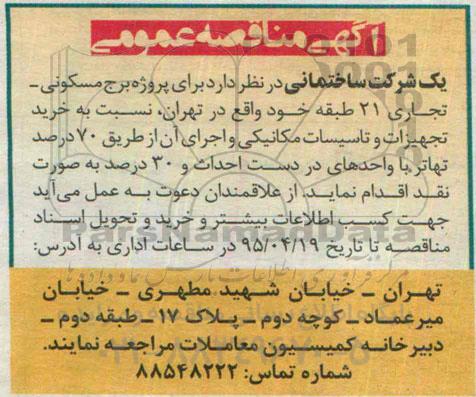 آگهی مناقصه عمومی
یک شرکت ساختمانی در نظر دارد برای پروژه برج مسکونی ـ
تجاری ۲۱ طبقه خود واقع در تهران، نسبت به خرید
تجهیزات و تاسیسات مکانیکی و اجرای آن از طریق ۷۰ درصد
تهاتر با واحدهای در دست احداث و ۳۰ درصد به صورت
نقد اقدام نماید. از علاقمندان دعوت به عمل می‌آید
جهت کسب اطلاعات بیشتر و خرید و تحویل اسناد
مناقصه تا تاریخ ۹۵/۰۴/۱۹ در ساعات اداری به آدرس:
تهران ـ خیابان شهید مطهری ـ خیابان
میرعماد ـ کوچه دوم ـ پلاک ۱۷ ـ طبقه دوم ـ
دبیرخانه کمیسیون معاملات مراجعه نمایند.
شماره تماس: ۸۸۵۴۸۲۲۲
ParsNamadData